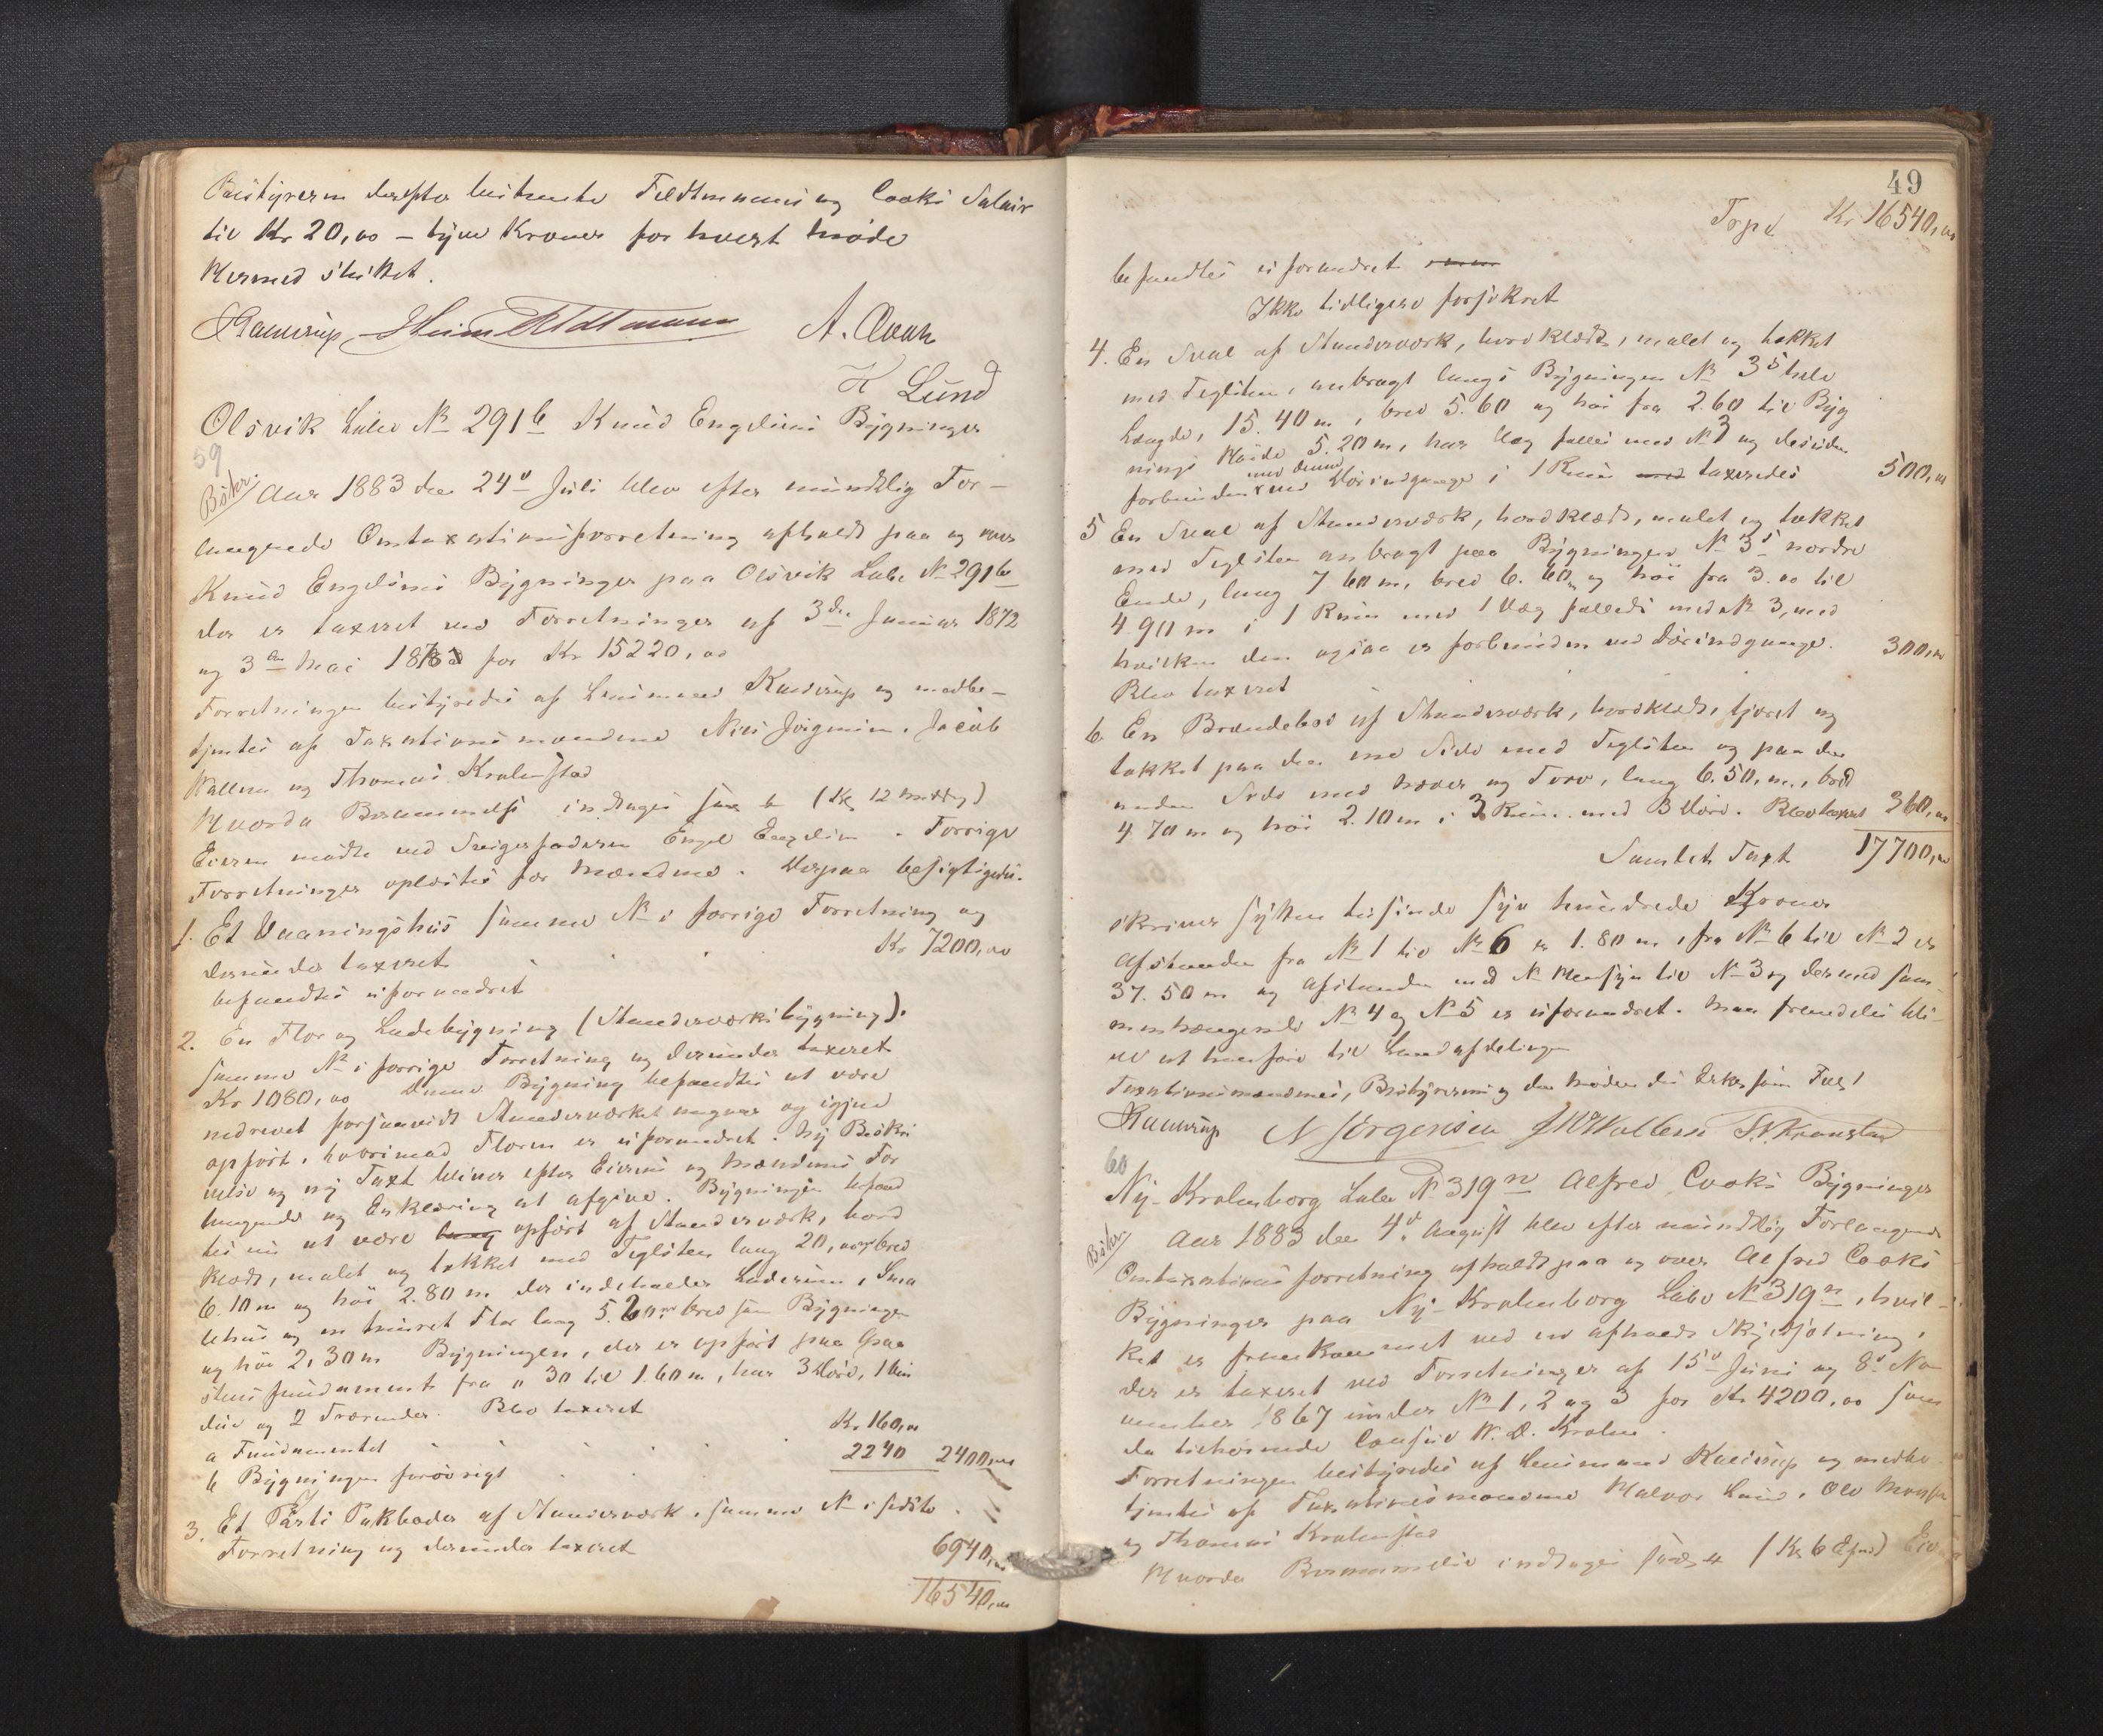 Bestyreren derefter bestemte Feldtmanns og Cooks Salair
til Kr 20,00 – tyve Kroner for hvert Møde
Hermed sluttet.
A. Cook
H Lund
Olsvik Lübe № 291b Knud Engelsens Bygninger
59
Aar 1883 den 24de Juli blev efter mundtlig For-
langende Omtaxationsforretning afholdt paa og over
Knud Engelsens Bygninger paa Olsvik Løbe № 291b
der er taxeret ved Forretninger af 3die Januar 1872
og 3die Mai for Kr 15220,00
Forretningen bestyredes af Lensmand og medbe-
tjentes af Taxationsmændene Nils Jørgensen, Jacob
Wallem og Thomas Krohnstad
Hvorda Berammelse indtages (Kl 12 Middag)
Eieren mødte ved Svigerfaderen Engel Engelsen. Forrige
Forretninger oplæstes for Mændene. Derpaa besigtigedes.
1. Et Vaaningshus samme № i forrige Forretning og
derunder taxeret Kr 7200,00
befandtes uforandret
2. En Flor og Ladebygning (Standerværksbygning).
samme № i forrige Forretning og derunder taxeret
Kr 1080,00 Denne Bygning befandtes at være
nedrevet forsaavidt Standerværket angaar og igjen
opført, hvorimod Floren er uforandret. Ny Beskri
velse og ny Taxt bliver efter Eierens og Mændenes For
langende og Erklæring at afgive. Bygningen befand
tes nu at være opført af Standerværk, bord
klædt, malet og tækket med Teglsten lang 20,00 m bred
6.10 m og høi 2.80 m der indeholder Laderum, Sma
lehus og en muret Flor lang 5.20 m bred som Bygningen
og høi 2,30 m Bygningen, der er opført paa Graa
stens fundament fra " 30 til 1.60 m, har 3 Døre, 1 Vin
due og 2 Trærender. Blev taxeret
a Fundamentet Kr. 160,00
b Bygningen forøvrigt 2240 2400,00
3. Et Parti Pakboder af Standerværk, samme № i sidste
Forretning og derunder taxeret 6940,00
16540,00
49
Trpt Kr 16540,00
befandtes uforandret
Ikke tidligere forsikret
4. En Sval af Standerværk, bordklædt, malet og tækket
med Teglsten, anbragt langs Bygningen № 3s hele
Længde, 15.40 m, bred 5.60 og høi fra 2.60 til Byg
nings Høide 5.20 m, har Væg fælles med № 3 og desuden
med denne
forbunden ved Dørindgange i 1 Rum taxeredes 500,00
5 En Sval af Standerværk, bordklædt, malet og tækket
med Teglsten anbragt paa Bygningen № 3s nordre
Ende, lang 7 60 m, bred 6. 60 m og høi fra 3.00 til
4 90 m i 1 Rum med 1 Væg fælleds med № 3, med
hvilken den ogsaa er forbunden ved Dørindgange.
Blev taxeret 300,00
6. En Brændebod af Standerværk, bordklædt, tjæret og
tækket paa den ene Side med Teglsten og paa den
anden Side med Næver og Torv, lang 6.50, m., bred
4.70 m og høi 2.10 m i 3 Rum med 3 Døre. Blev taxeret 360,00
Samlet Taxt 17700,00
skriver sytten tusinde syv hundrede Kroner
Afstanden fra № 1 til № 6 er 1.80 m, fra № 6 til № 2 er
37.50 m og Afstanden med Hensyn til № 3 og dermed sam-
menhængende № 4 og № 5 er uforandret. Maa fremdeles bli-
ve at henføre til Landafdelingen
N Jørgensen J W Wallem
60
Ny-Krohnborg Løbe № 319n Alfred Cooks Bygninger
Aar 1883 den 4de August blev efter mundtlig Forlangende
Omtaxationsforretning afholdt paa og over Alfred Cooks
Bygninger paa Ny-Krohnborg Løbe № 319n, hvil-
ket er fremkommet ved en afholdt Skyldsætning,
der er taxeret ved Forretninger af 15de Juni og 8de No
vember 1867 under № 1, 2 og 3 for Kr 4200,00 som
da tilhørende Consul W. D. Krohn.
Forretningen bestyredes af Lensmand og medbe
tjentes af Taxationsmændene Halvor Lund, Ole
og Thomas Krohnstad
Hvorda Berammelse indtages (Kl 6 Efm)